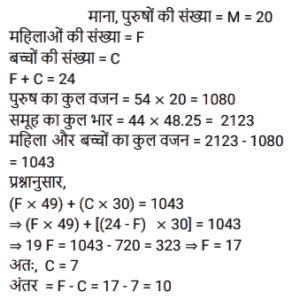 माना, पुरुषों की संख्या = M = 20
महिलाओं की संख्या = F
बच्चों की संख्या = C
F + C = 24
पुरुष का कुल वजन = 54 × 20 = 1080
समूह का कुल भार = 44 × 48.25 = 2123
महिला और बच्चों का कुल वजन = 2123 - 1080
= 1043
प्रश्नानुसार,
(F × 49) + (C × 30) = 1043
⇒ (F × 49) + [(24 - F) × 30] = 1043
⇒ 19 F = 1043 - 720 = 323 ⇒ F = 17
अतः, C = 7
अंतर = F - C = 17 - 7 = 10